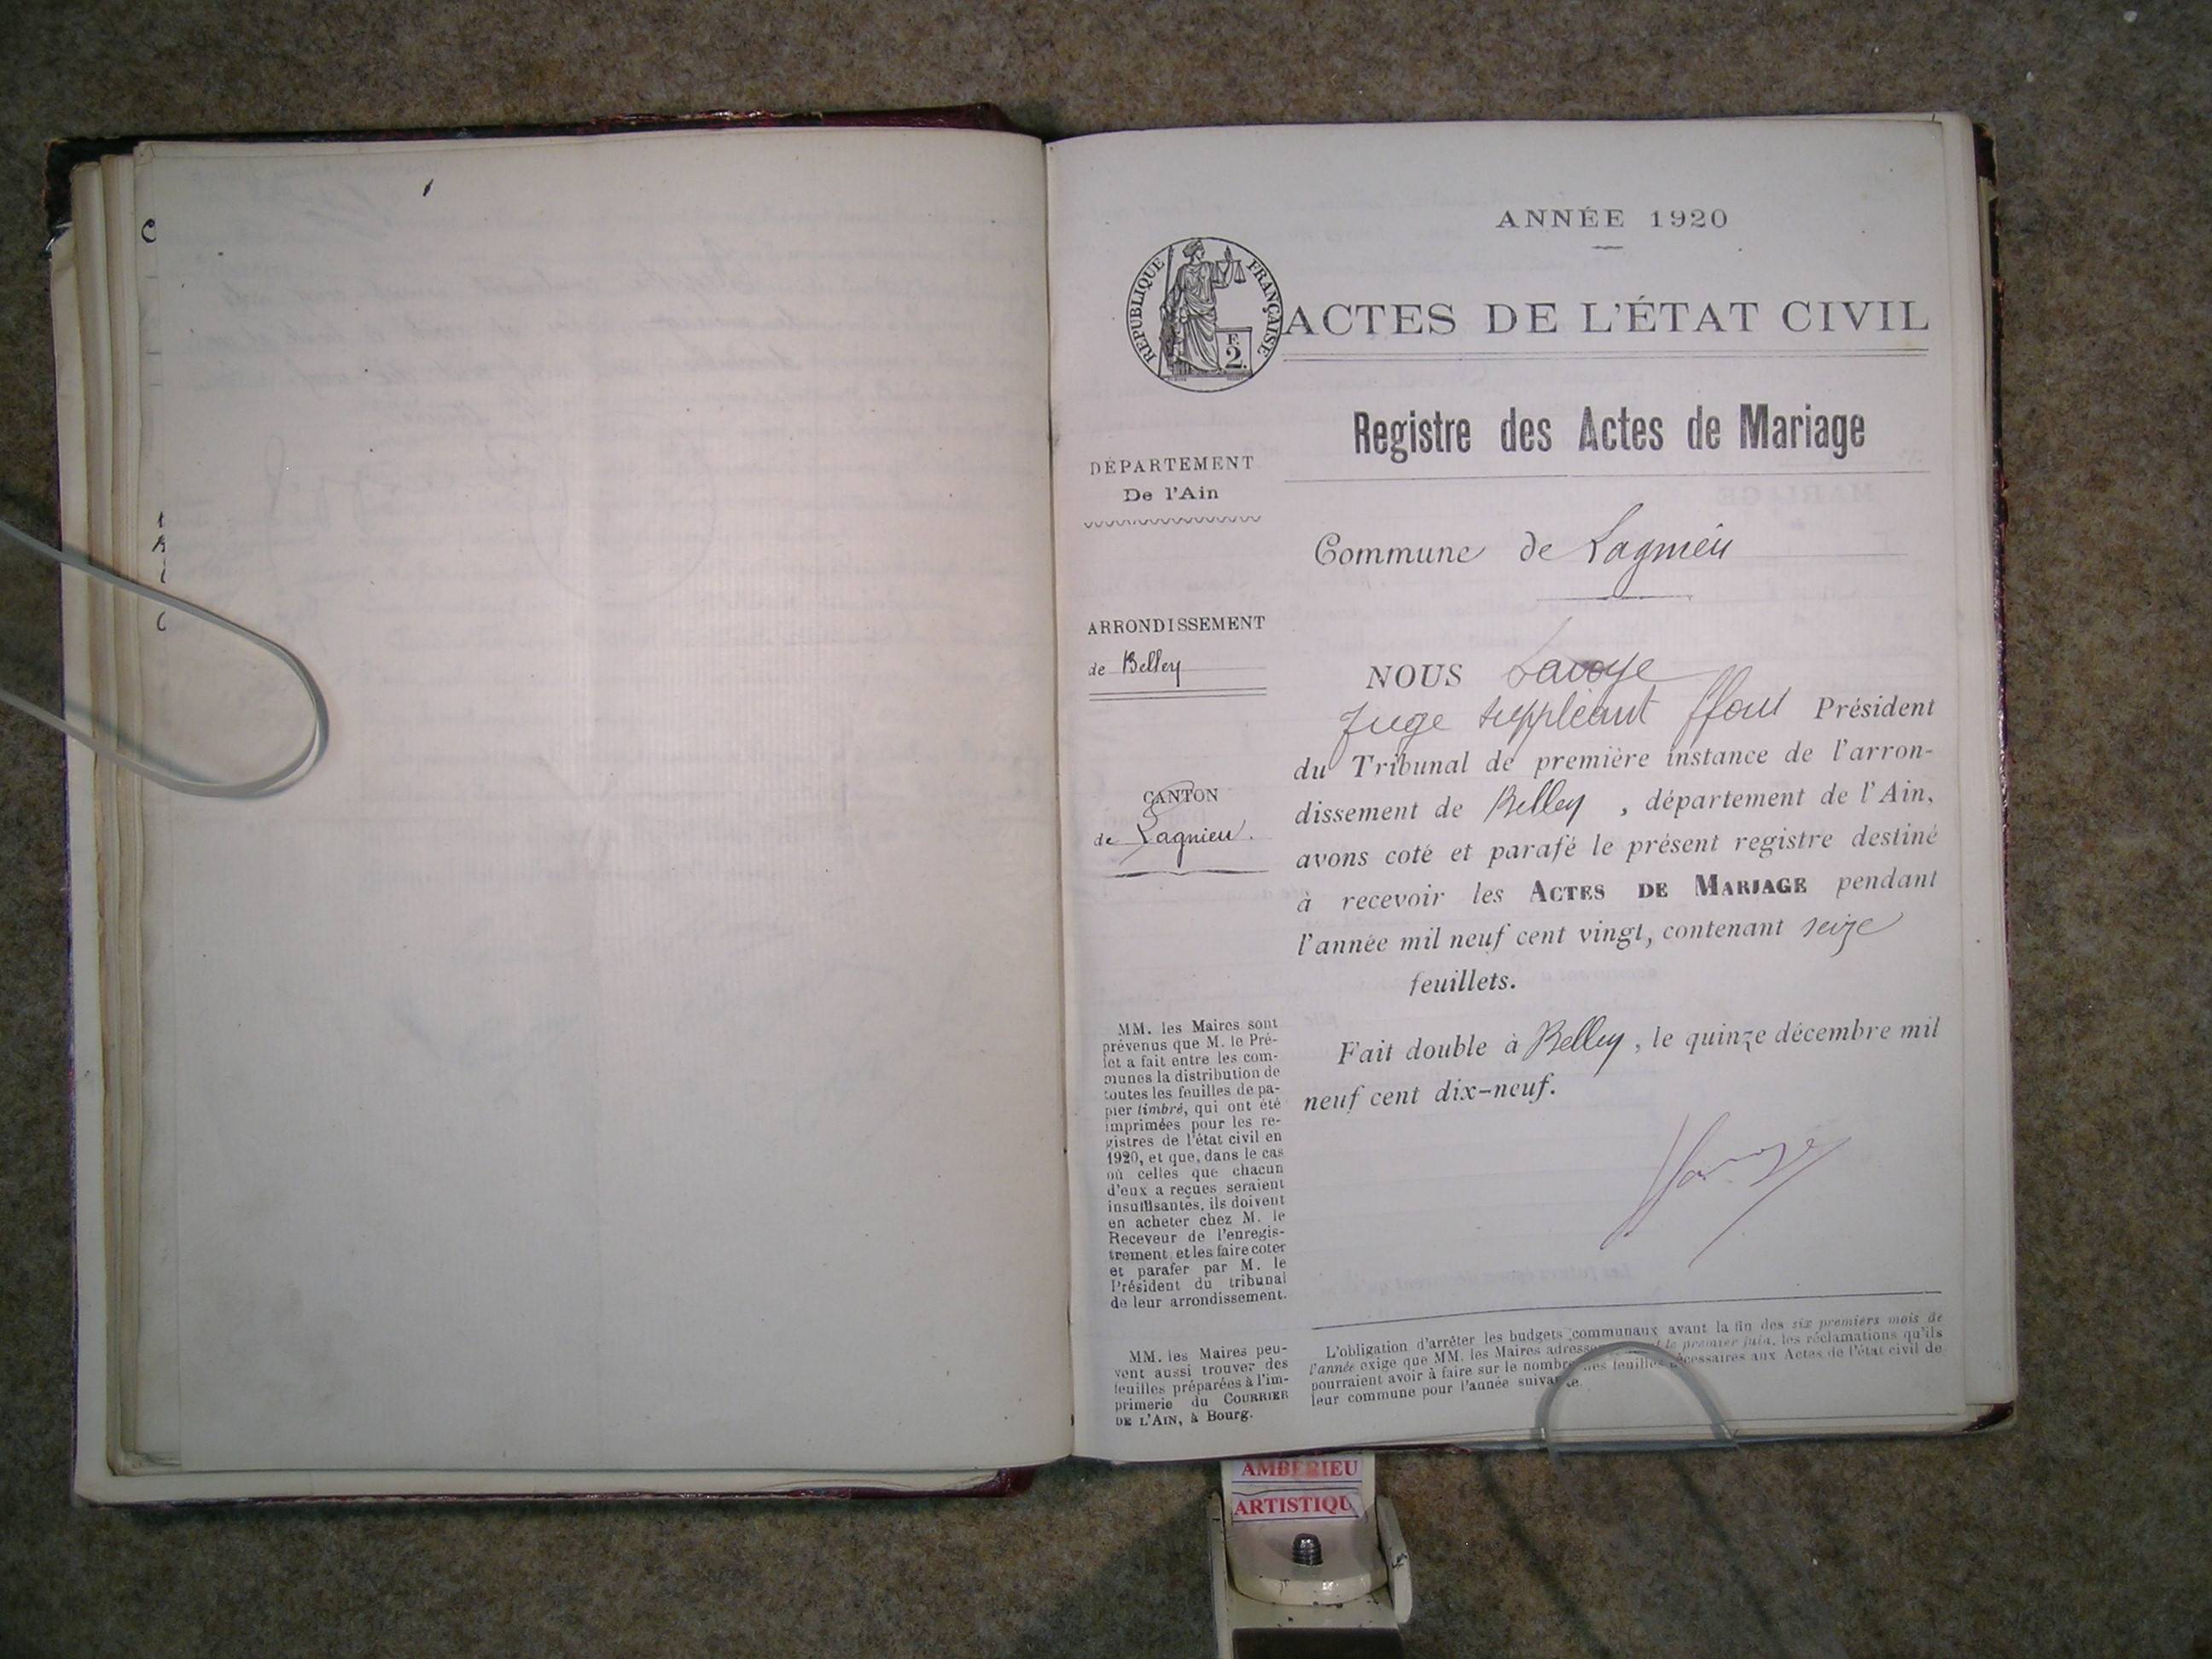 ANNÉE 1920
RÉPUBLIQUE FRANÇAISE
F
2.
ACTES DE L'ÉTAT CIVIL
Registre des Actes de Mariage
DÉPARTEMENT
De l'Ain
Commune de Lagnieu
ARRONDISSEMENT
de Belley
CANTON
de Lagnieu.
NOUS Lavoye
Juge suppléant ffons Président
du Tribunal de première instance de l'arron-
dissement de Belley, département de l'Ain,
avons coté et parafé le présent registre destiné
à recevoir les ACTES DE MARIAGE pendant
l'année mil neuf cent vingt, contenant seize
feuillets.
Fait double à Belley, le quinze décembre mil
neuf cent dix-neuf.
MM. les Maires sont
prévenus que M. le Pré-
fet a fait entre les com-
munes la distribution de
toutes les feuilles de pa-
pier timbré, qui ont été
imprimées pour les re-
gistres de l'état civil en
1920, et que, dans le cas
où celles que chacun
d'eux a reçues seraient
insuffisantes, ils doivent
en acheter chez M. le
Receveur de l'enregis-
trement et les faire coter
et parafer par M. le
Président du tribunal
de leur arrondissement.
MM. les Maires peu-
vent aussi trouver des
feuilles préparées à l'im-
primerie du COURRIER
DE L'AIN, à Bourg.
L'obligation d'arrêter les budgets communaux avant la fin des six premiers mois de
l'année exige que MM. les Maires adressent le premier juin, les réclamations qu'ils
pourraient avoir à faire sur le nombre des feuilles nécessaires aux Actes de l'état civil de
leur commune pour l'année suivante
AMBERIEU
ARTISTIQU